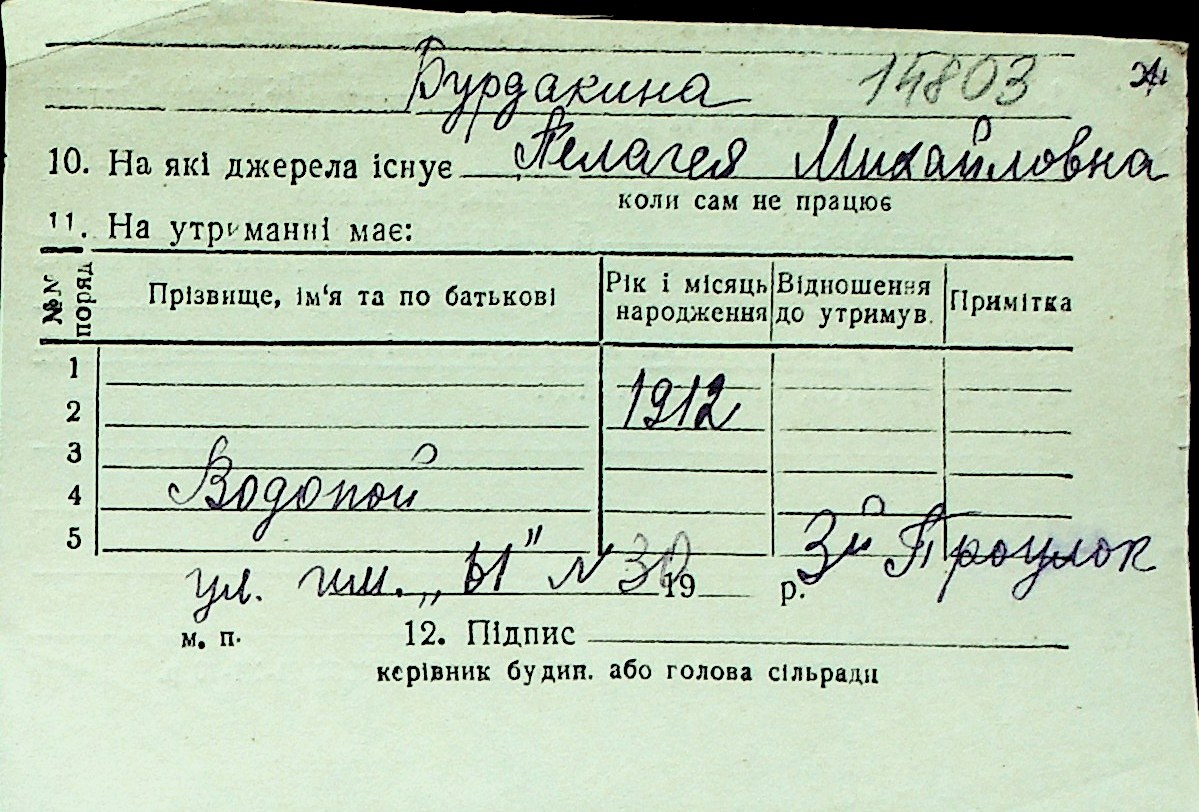 Бурдакина 14803
10. На які джерела існує Пелагея Михайловна
коли сам не працює
11. На утриманні має:
№№ поряд
Прізвище, ім'я та по батькові
Рік і місяць народження
Відношення до утримув.
Примітка
1
2 1912
3
4 Водопой
5 3й Проулок
ул. им. „Ы" N 30 19 р.
м. п. 12. Підпис
керівник будин. або голова сільради